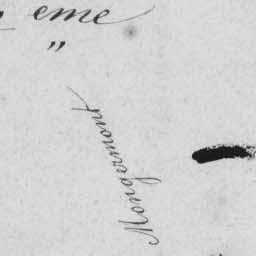 eme
"
Mongermont